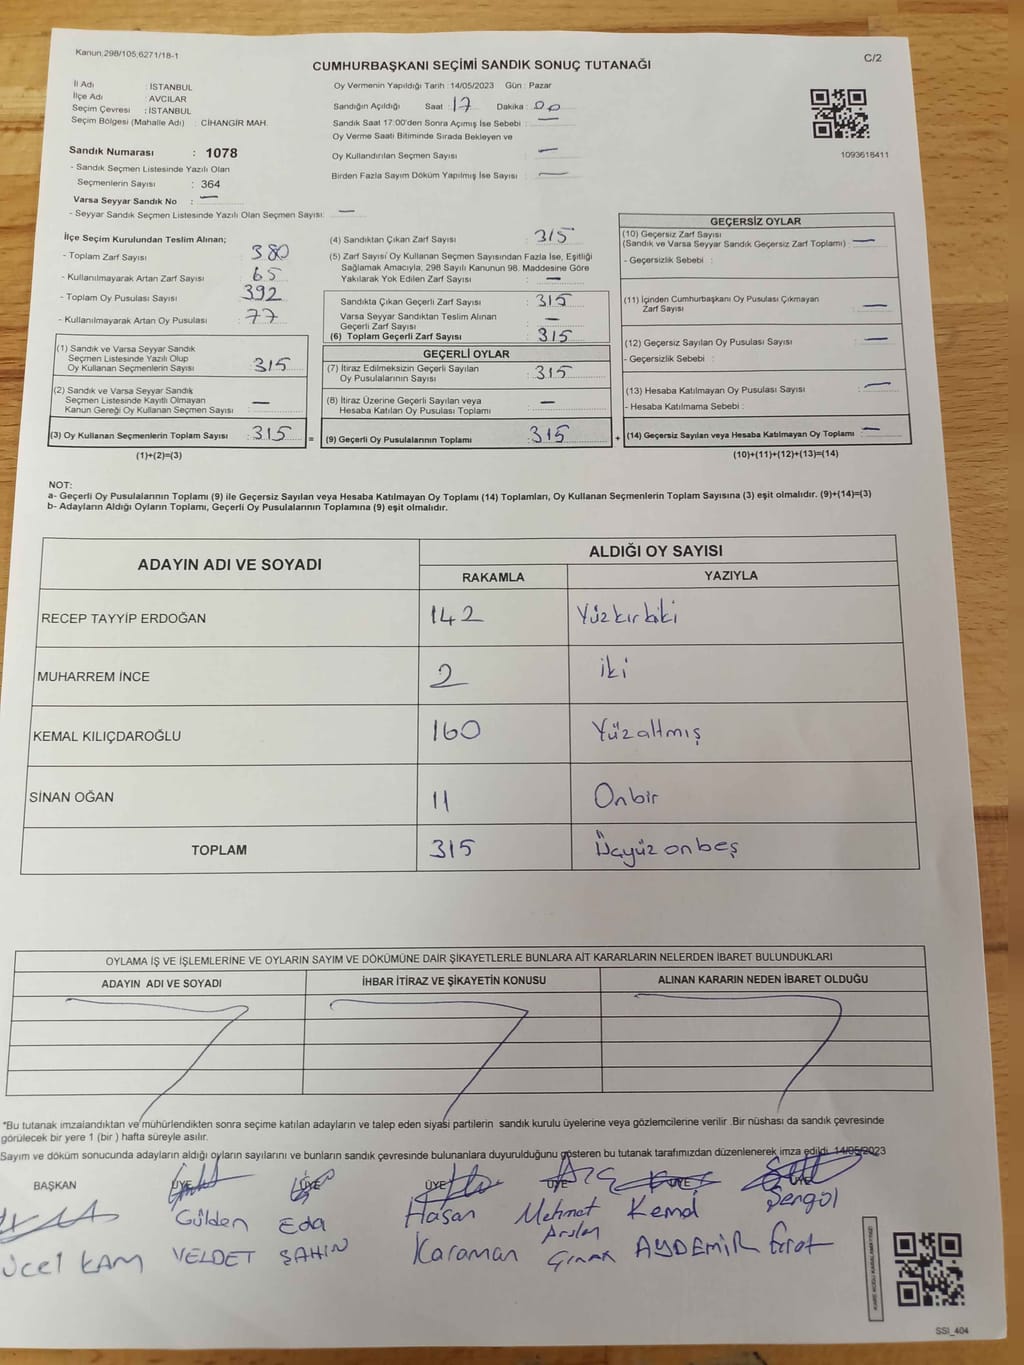 Kanun:298/105;6271/18-1
C/2
CUMHURBAŞKANI SEÇİMİ SANDIK SONUÇ TUTANAĞI
İl Adı : İSTANBUL
İlçe Adı : AVCILAR
Seçim Çevresi : İSTANBUL
Seçim Bölgesi (Mahalle Adı) : CİHANGİR MAH.
Oy Vermenin Yapıldığı Tarih :14/05/2023 Gün : Pazar
Sandığın Açıldığı Saat : 17 Dakika : 00
Sandık Saat 17:00'den Sonra Açımış İse Sebebi : —
Oy Verme Saati Bitiminde Sırada Bekleyen ve
Oy Kullandırılan Seçmen Sayısı : —
Birden Fazla Sayım Döküm Yapılmış İse Sayısı : —
1093618411
Sandık Numarası : 1078
- Sandık Seçmen Listesinde Yazılı Olan
Seçmenlerin Sayısı : 364
Varsa Seyyar Sandık No : —
- Seyyar Sandık Seçmen Listesinde Yazılı Olan Seçmen Sayısı: —
İlçe Seçim Kurulundan Teslim Alınan;
- Toplam Zarf Sayısı : 380
- Kullanılmayarak Artan Zarf Sayısı : 65
- Toplam Oy Pusulası Sayısı : 392
- Kullanılmayarak Artan Oy Pusulası : 77
(1) Sandık ve Varsa Seyyar Sandık
Seçmen Listesinde Yazılı Olup
Oy Kullanan Seçmenlerin Sayısı : 315
(2) Sandık ve Varsa Seyyar Sandık
Seçmen Listesinde Kayıtlı Olmayan
Kanun Gereği Oy Kullanan Seçmen Sayısı : —
(3) Oy Kullanan Seçmenlerin Toplam Sayısı : 315 =
(1)+(2)=(3)
(4) Sandıktan Çıkan Zarf Sayısı : 315
(5) Zarf Sayısı Oy Kullanan Seçmen Sayısından Fazla İse, Eşitliği
Sağlamak Amacıyla, 298 Sayılı Kanunun 98. Maddesine Göre
Yakılarak Yok Edilen Zarf Sayısı : —
Sandıkta Çıkan Geçerli Zarf Sayısı : 315
Varsa Seyyar Sandıktan Teslim Alınan
Geçerli Zarf Sayısı : —
(6) Toplam Geçerli Zarf Sayısı : 315
GEÇERLİ OYLAR
(7) İtiraz Edilmeksizin Geçerli Sayılan
Oy Pusulalarının Sayısı : 315
(8) İtiraz Üzerine Geçerli Sayılan veya
Hesaba Katılan Oy Pusulası Toplamı : —
(9) Geçerli Oy Pusulalarının Toplamı : 315 +
GEÇERSİZ OYLAR
(10) Geçersiz Zarf Sayısı
(Sandık ve Varsa Seyyar Sandık Geçersiz Zarf Toplamı) : —
- Geçersizlik Sebebi :
(11) İçinden Cumhurbaşkanı Oy Pusulası Çıkmayan
Zarf Sayısı : —
(12) Geçersiz Sayılan Oy Pusulası Sayısı : —
- Geçersizlik Sebebi :
(13) Hesaba Katılmayan Oy Pusulası Sayısı : —
- Hesaba Katılmama Sebebi :
(14) Geçersiz Sayılan veya Hesaba Katılmayan Oy Toplamı : —
(10)+(11)+(12)+(13)=(14)
NOT:
a- Geçerli Oy Pusulalarının Toplamı (9) ile Geçersiz Sayılan veya Hesaba Katılmayan Oy Toplamı (14) Toplamları, Oy Kullanan Seçmenlerin Toplam Sayısına (3) eşit olmalıdır. (9)+(14)=(3)
b- Adayların Aldığı Oyların Toplamı, Geçerli Oy Pusulalarının Toplamına (9) eşit olmalıdır.
ADAYIN ADI VE SOYADI
ALDIĞI OY SAYISI
RAKAMLA YAZIYLA
RECEP TAYYİP ERDOĞAN 142 Yüzkırkiki
MUHARREM İNCE 2 iki
KEMAL KILIÇDAROĞLU 160 Yüzaltmış
SİNAN OĞAN 11 Onbir
TOPLAM 315 Üçyüz onbeş
OYLAMA İŞ VE İŞLEMLERİNE VE OYLARIN SAYIM VE DÖKÜMÜNE DAİR ŞİKAYETLERLE BUNLARA AİT KARARLARIN NELERDEN İBARET BULUNDUKLARI
ADAYIN ADI VE SOYADI İHBAR İTİRAZ VE ŞİKAYETİN KONUSU ALINAN KARARIN NEDEN İBARET OLDUĞU
*Bu tutanak imzalandıktan ve mühürlendikten sonra seçime katılan adayların ve talep eden siyasi partilerin sandık kurulu üyelerine veya gözlemcilerine verilir .Bir nüshası da sandık çevresinde
görülecek bir yere 1 (bir ) hafta süreyle asılır.
Sayım ve döküm sonucunda adayların aldığı oyların sayılarını ve bunların sandık çevresinde bulunanlara duyurulduğunu gösteren bu tutanak tarafımızdan düzenlenerek imza edildi. 14/05/2023
BAŞKAN ÜYE ÜYE ÜYE ÜYE ÜYE ÜYE
Gülden Eda Hasan Mehmet Kemal Şengül
Arslan
KAM VELDET ŞAHİN Karaman Çınar AYDEMİR fırat
SSI_404